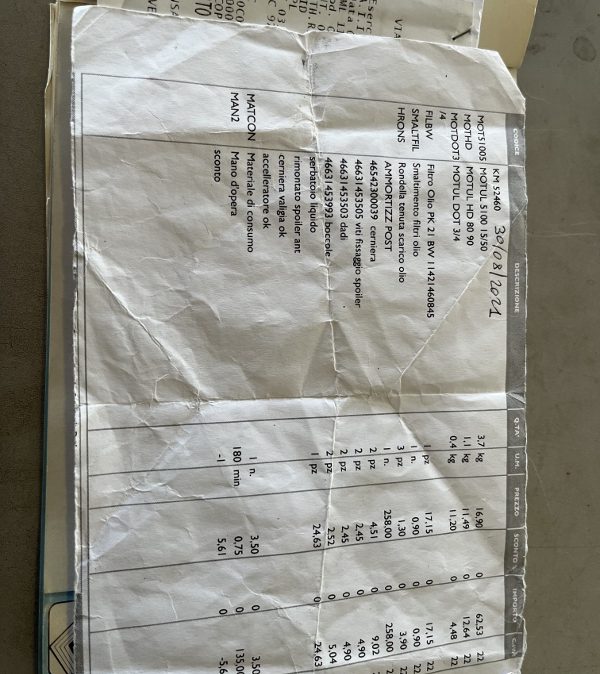 CODICE DESCRIZIONE Q.TA' U.M. PREZZO SCONTO IMPORTO
KM 52460 30/08/2021
MOT51005 MOTUL 5100 15/50 3,7 kg 16,90 0 62,53 22
MOTHD MOTUL HD 80 90 1,1 kg 11,49 0 12,64 22
MOTDOT3 MOTUL DOT 3/4 0,4 kg 11,20 0 4,48 22
/4
FILBW Filtro Olio PK 21 BW 11421460845 1 pz 17,15 0 17,15 22
SMALTFIL Smaltimento filtri olio 1 n. 0,90 0 0,90 22
HRONS Rondella tenuta scarico olio 3 pz 1,30 0 3,90 22
AMMORTIZZ POST 1 n. 258,00 0 258,00 22
46542300039 cerniera 2 pz 4,51 0 9,02 22
46631453505 viti fissaggio spoiler 2 pz 2,45 0 4,90 22
46631453503 dadi 2 pz 2,45 0 4,90 22
46631453993 boccole 2 pz 2,52 0 5,04 22
serbatoio liquido 1 pz 24,63 0 24,63 22
rimontato spoiler ant
cerniera valigia ok
accelleratore ok
MATCON Materiale di consumo 1 n. 3,50 0 3,50
MAN2 Mano d'opera 180 min 0,75 0 135,00
sconto -1 5,61 0 -5,6